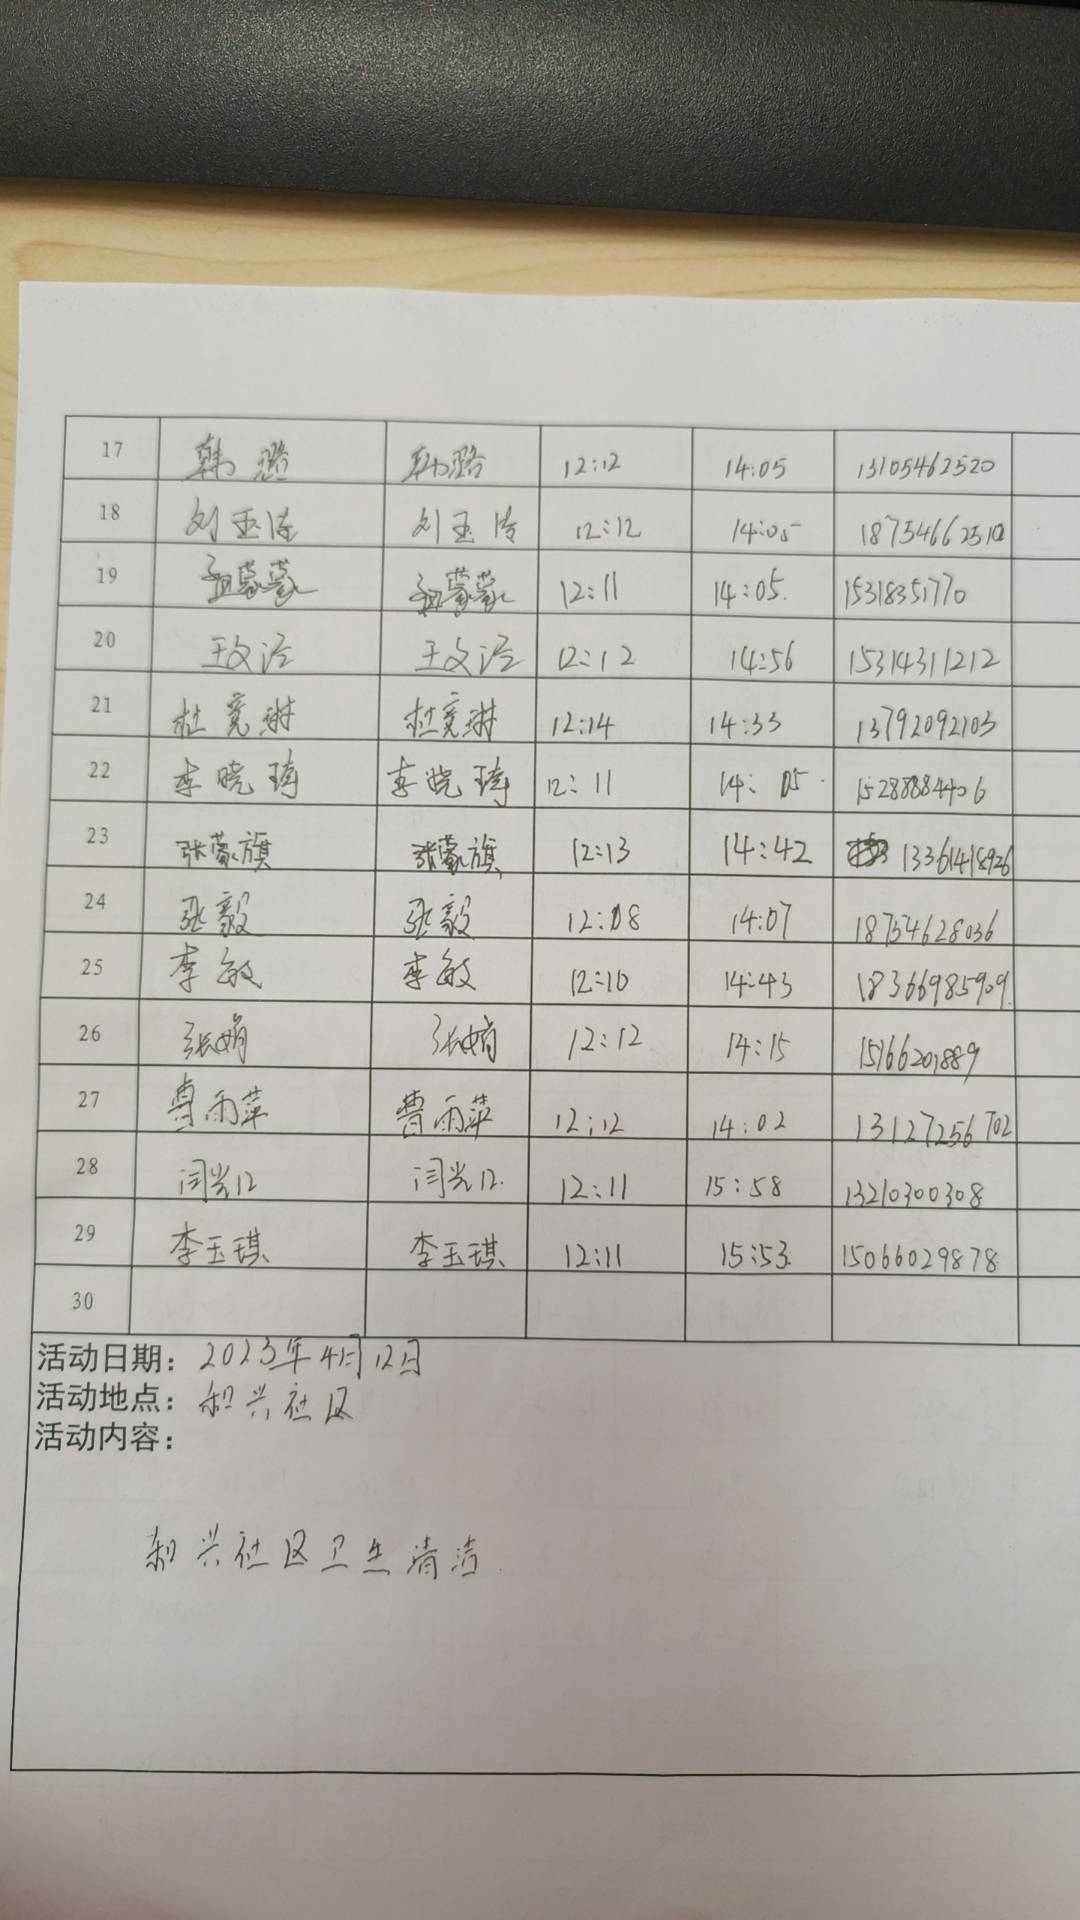 17 韩璐 韩璐 12:12 14:05 13105462520
18 刘玉 刘玉 12:12 14:05 18754662510
19 孟蒙蒙 孟蒙蒙 12:11 14:05. 15318351770
20 王文泾 王文泾 12:12 14:56 15314311212
21 杜竞琳 杜竞琳 12:14 14:33 13792092103
22 李晓琦 李晓琦 12:11 14:05 15288884406
23 张蒙旗 张蒙旗 12:13 14:42 13361418926
24 张毅 张毅 12:08 14:07 18754628036
25 李敏 李敏 12:10 14:43 18366985909
26 张娟 张娟 12:12 14:15 15166201889
27 曹雨萍 曹雨萍 12:12 14:02 13127256702
28 闫光 闫光 12:11 15:58 13210300308
29 李玉琪 李玉琪 12:11 15:53 15066029878
30
活动日期：2023年4月12日
活动地点：和兴社区
活动内容：
和兴社区卫生清洁